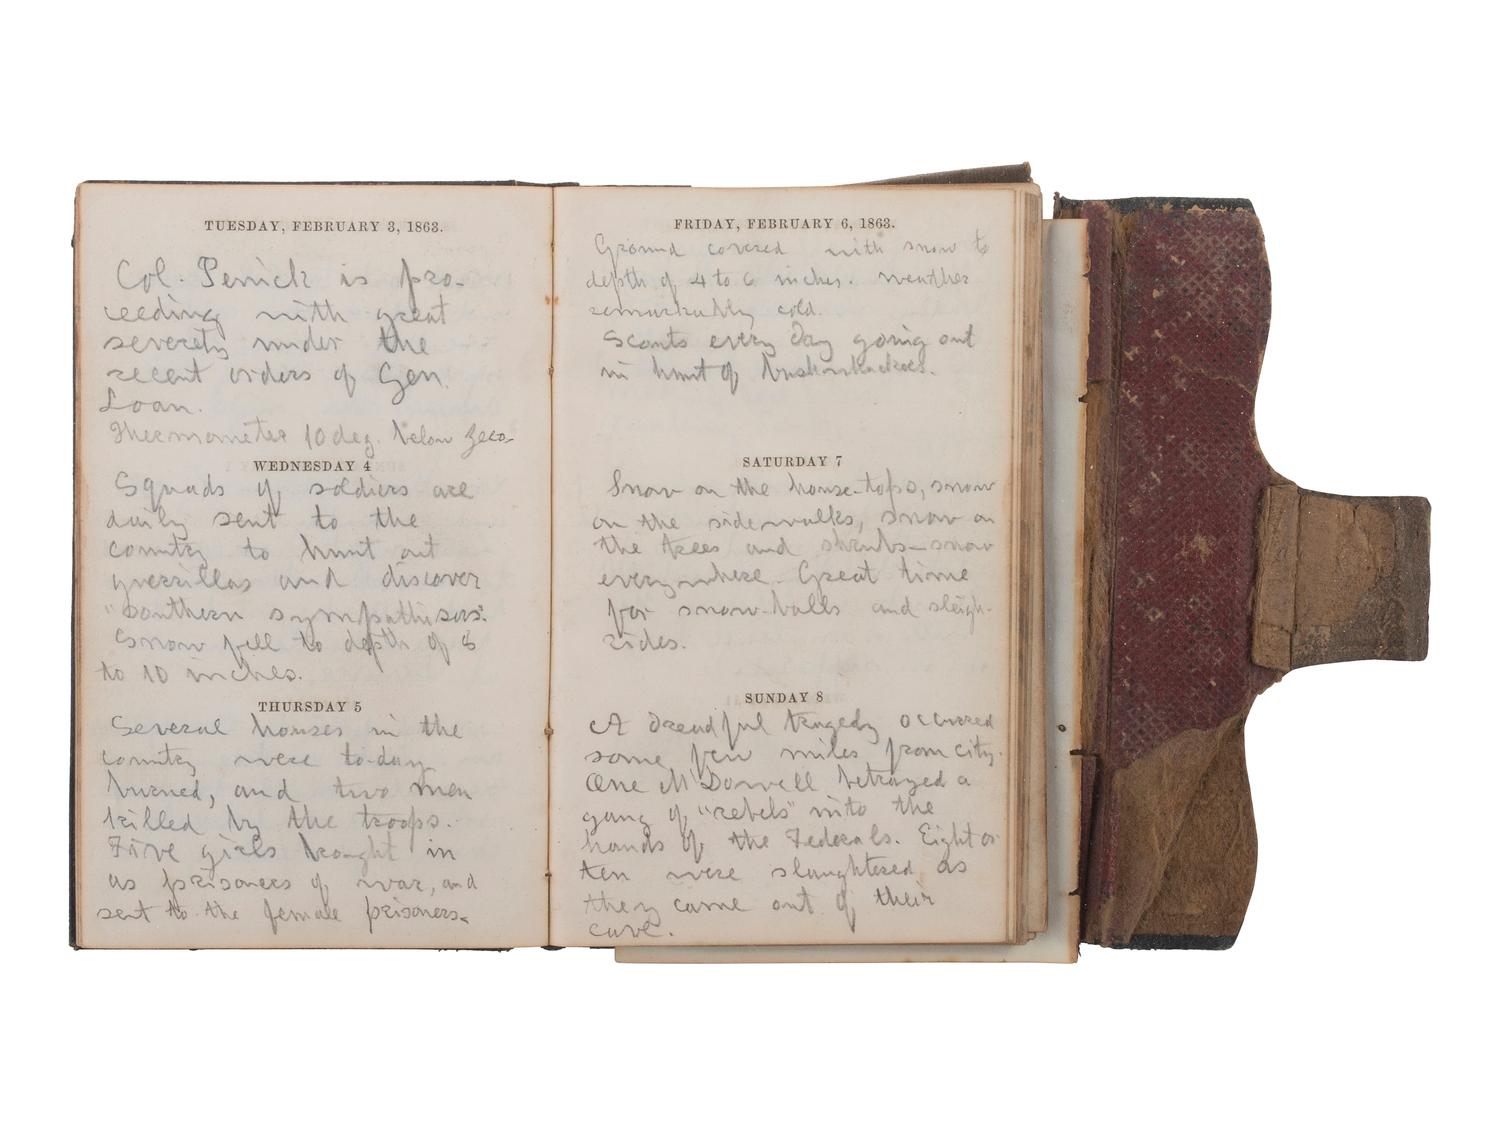 TUESDAY, FEBRUARY 3, 1863.
Col. Penick is pro-
ceeding with great
severety under the
recent orders of Gen.
Loan.
Thermometer 10 deg. below zero-
WEDNESDAY 4
Squads of soldiers are
daily sent to the
country to hunt out
guerrillas and discover
"southern sympathisers".
Snow fell to depth of 8
to 10 inches.
THURSDAY 5
Several houses in the
country were to-day
burned, and two men
killed by the troops.
Five girls brought in
as prisoners of war, and
sent to the female prisoners.
FRIDAY, FEBRUARY 6, 1863.
Ground covered with snow to
depth of 4 to 6 inches. weather
remarkably cold.
Scouts every day going out
in hunt of bushwhackers.
SATURDAY 7
Snow on the house-tops, snow
on the sidewalks, snow on
the trees and shrubs—snow
everywhere. Great time
for snow-balls and sleigh-
rides.
SUNDAY 8
A dreadful tragedy occurred
some few miles from city.
One McDowell betrayed a
gang of "rebels" into the
hands of the Federals. Eight or
ten were slaughtered as
they came out of their
cave.